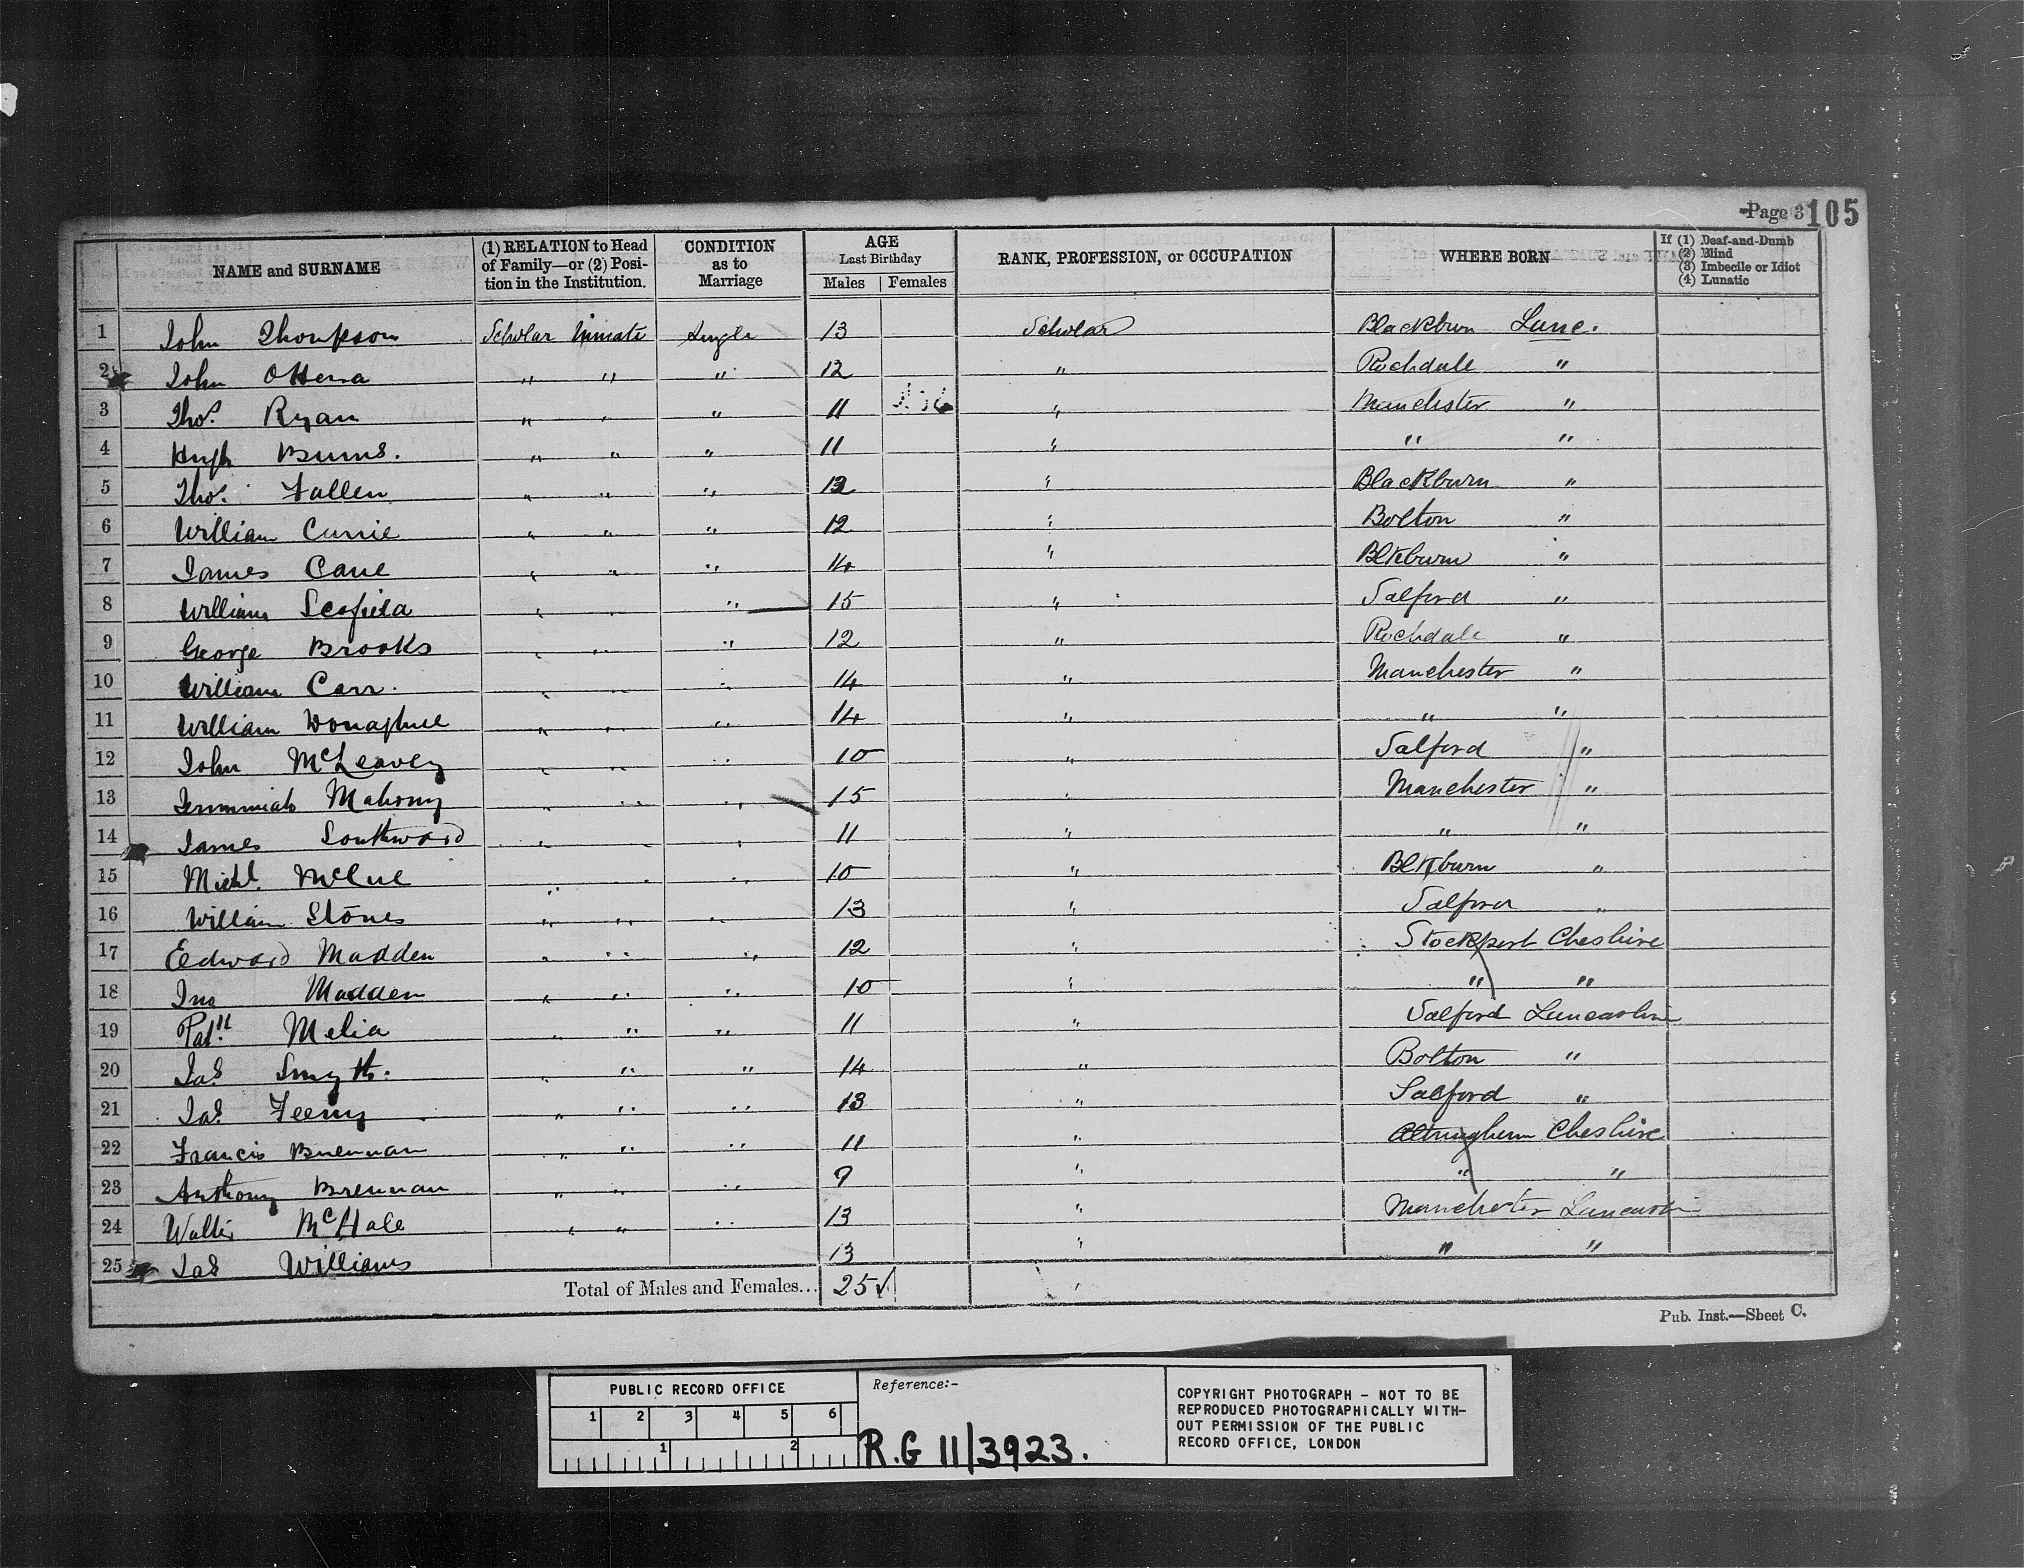 Page 3 105
NAME and SURNAME | (1) RELATION to Head of Family—or (2) Position in the Institution. | CONDITION as to Marriage | AGE Last Birthday Males Females | RANK, PROFESSION, or OCCUPATION | WHERE BORN | If (1) Deaf-and-Dumb (2) Blind (3) Imbecile or Idiot (4) Lunatic
1 John Thompson Scholar Inmate Single 13 Scholar Blackburn Lanc.
2 John " " " 12 " Rochdale "
3 Thos. Ryan " " " 11 " Manchester "
4 Hugh Burns. " " " 11 " " "
5 Thos. Fallen " " " " Blackburn "
6 William Currie " " " 12 " Bolton "
7 James Cane " " " 14 " Blkburn "
8 William " " " 15 " Salford "
9 George Brooks " " " 12 " Rochdale "
10 William Carr. " " " 14 " Manchester "
11 William Donaghue " " " 14 " " "
12 John McLeavey " " " 10 " Salford "
13 Mahony " " " 15 " Manchester "
14 James Southward " " " 11 " " "
15 Michl. McCue " " " 10 " Blkburn "
16 William Stones " " " 13 " Salford "
17 Edward Madden " " " 12 " Stockport Cheshire
18 Jno Madden " " " 10 " " "
19 Patk. Melia " " " 11 " Salford Lancashire
20 Jas Smyth. " " " 14 " Bolton "
21 Jas. Feeny " " " 13 " Salford "
22 Francis Brennan " " " 11 " Altringham Cheshire
23 Anthony Brennan " " " 9 " " "
24 Walter McHale " " " 13 " Manchester
25 Jas Williams 13 " " "
Total of Males and Females... 25 ✓
Pub. Inst.—Sheet C.
PUBLIC RECORD OFFICE
1 2 3 4 5 6
1 2
Reference:-
R.G 11/3923.
COPYRIGHT PHOTOGRAPH - NOT TO BE
REPRODUCED PHOTOGRAPHICALLY WITH-
OUT PERMISSION OF THE PUBLIC
RECORD OFFICE, LONDON